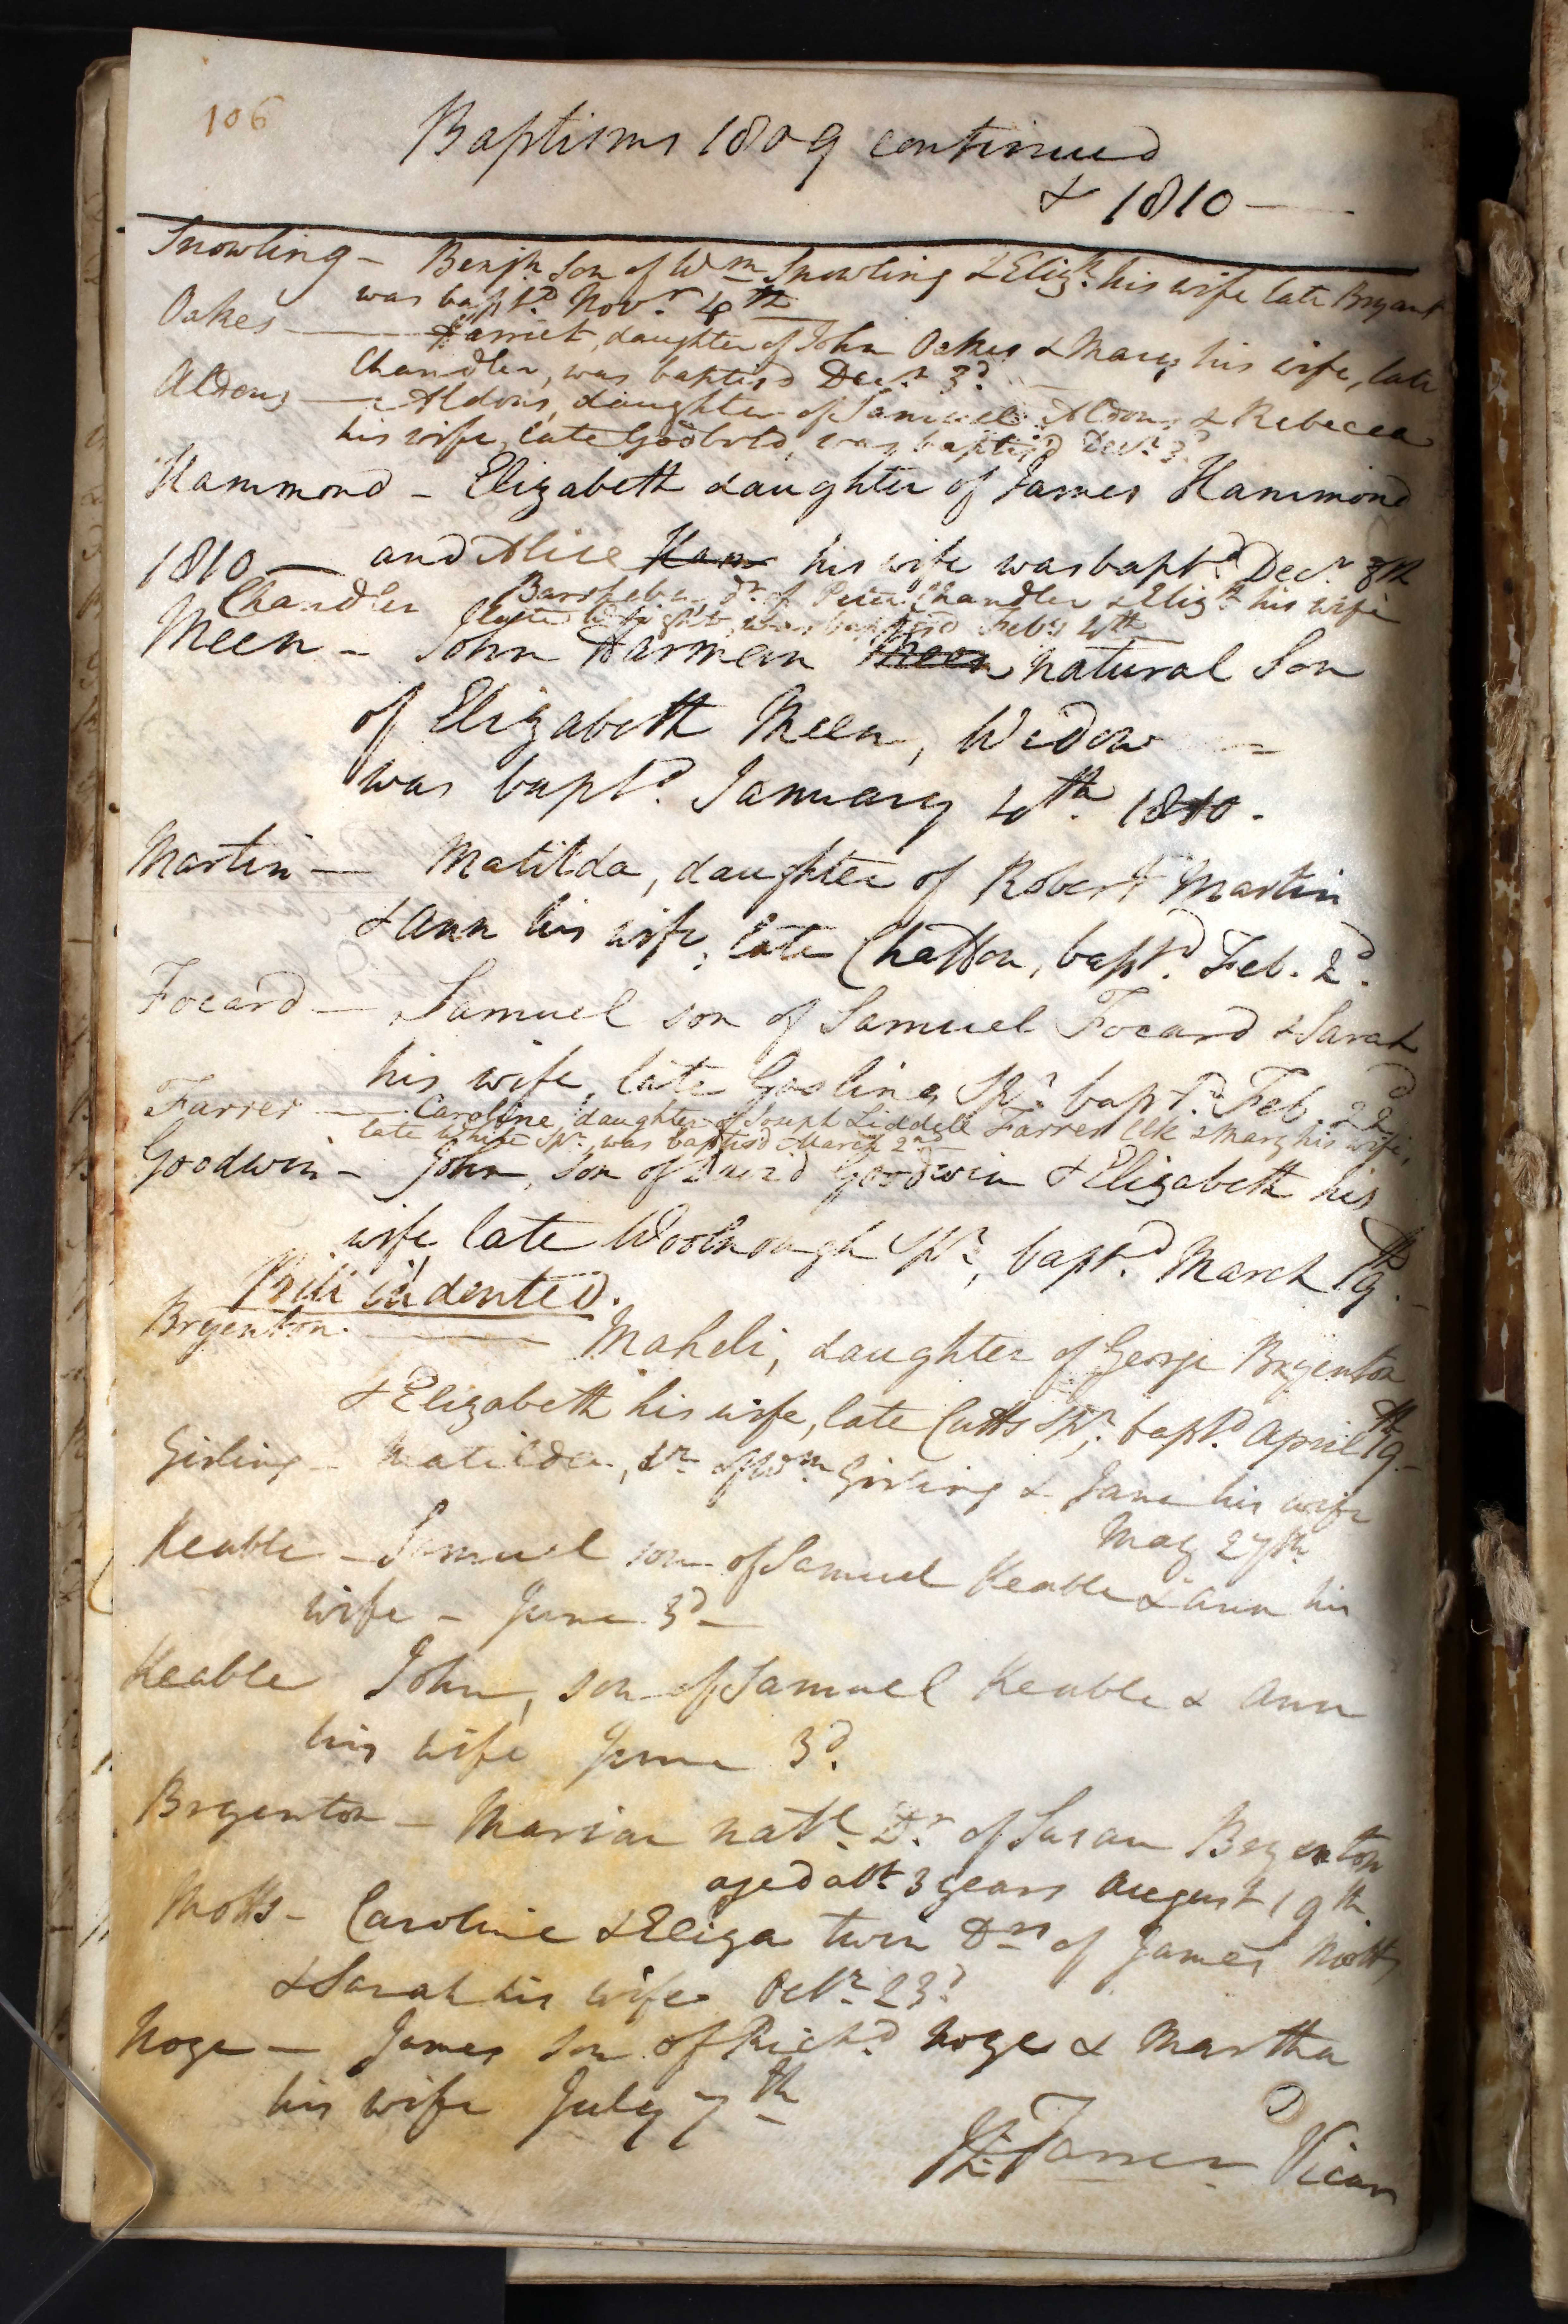 106
Baptisms 1809 continued
& 1810 —
Snowling – Benjn. Son of Wm. Snowling & Elizth. his wife late Bryant
was bapt.d Nov.r 4th
Oakes — Harriet, daughter of John Oakes & Mary his wife, late
Chandler, was baptisd Decr. 3d.
Aldous — Aldous, daughter of Samuel Aldous & Rebecca
his wife, late Godbold, was baptis'd Decr. 3d.
Hammond – Elizabeth daughter of James Hammond
and Alice Ham his wife was bapt.d Decr. 8th
1810 —
Chandler Barsheba, Dr. of Peter Chandler & Elizth. his wife
late Wright, was baptisd Feby 4th
Meen – John Harman Meen natural Son
of Elizabeth Meen, Widow =
was bapt.d January 4th. 1810.
Martin — Matilda, daughter of Robert Martin
& Ann his wife, late Chatton, bapt.d Feb. 2d.
Focard — Samuel son of Samuel Focard & Sarah
his wife, late Gosling Spr. bapt.d Feb. 22d
Farrer — Caroline daughter of Joseph Liddell Farrer Clk & Mary his wife,
late White Spr. was baptisd March 2nd
Goodwin – John, Son of David Goodwin & Elizabeth his
wife, late Woolnough Spr., bapt.d March 19th. –
Bill indented.
Bryenton. — Maheli, daughter of George Bryenton
& Elizabeth his wife, late Cutts Spr. bapt.d April 19th –
Girling – Matilda, Dr. of Wm. Girling & Jane his wife
May 27th.
Keable – Samuel son of Samuel Keable & Ann his
wife – June 3d –
Keable John, son of Samuel Keable & Ann
his wife June 3d.
Bryenton – Marian natl. Dr. of Susan Bryenton
aged abt. 3 years August 19th.
Motts – Caroline & Eliza twin Drs of James Motts
& Sarah his wife Octr. 23d
Noze — James Son of Richd. Noze & Martha
his wife July 7th
JL Farrer Vicar